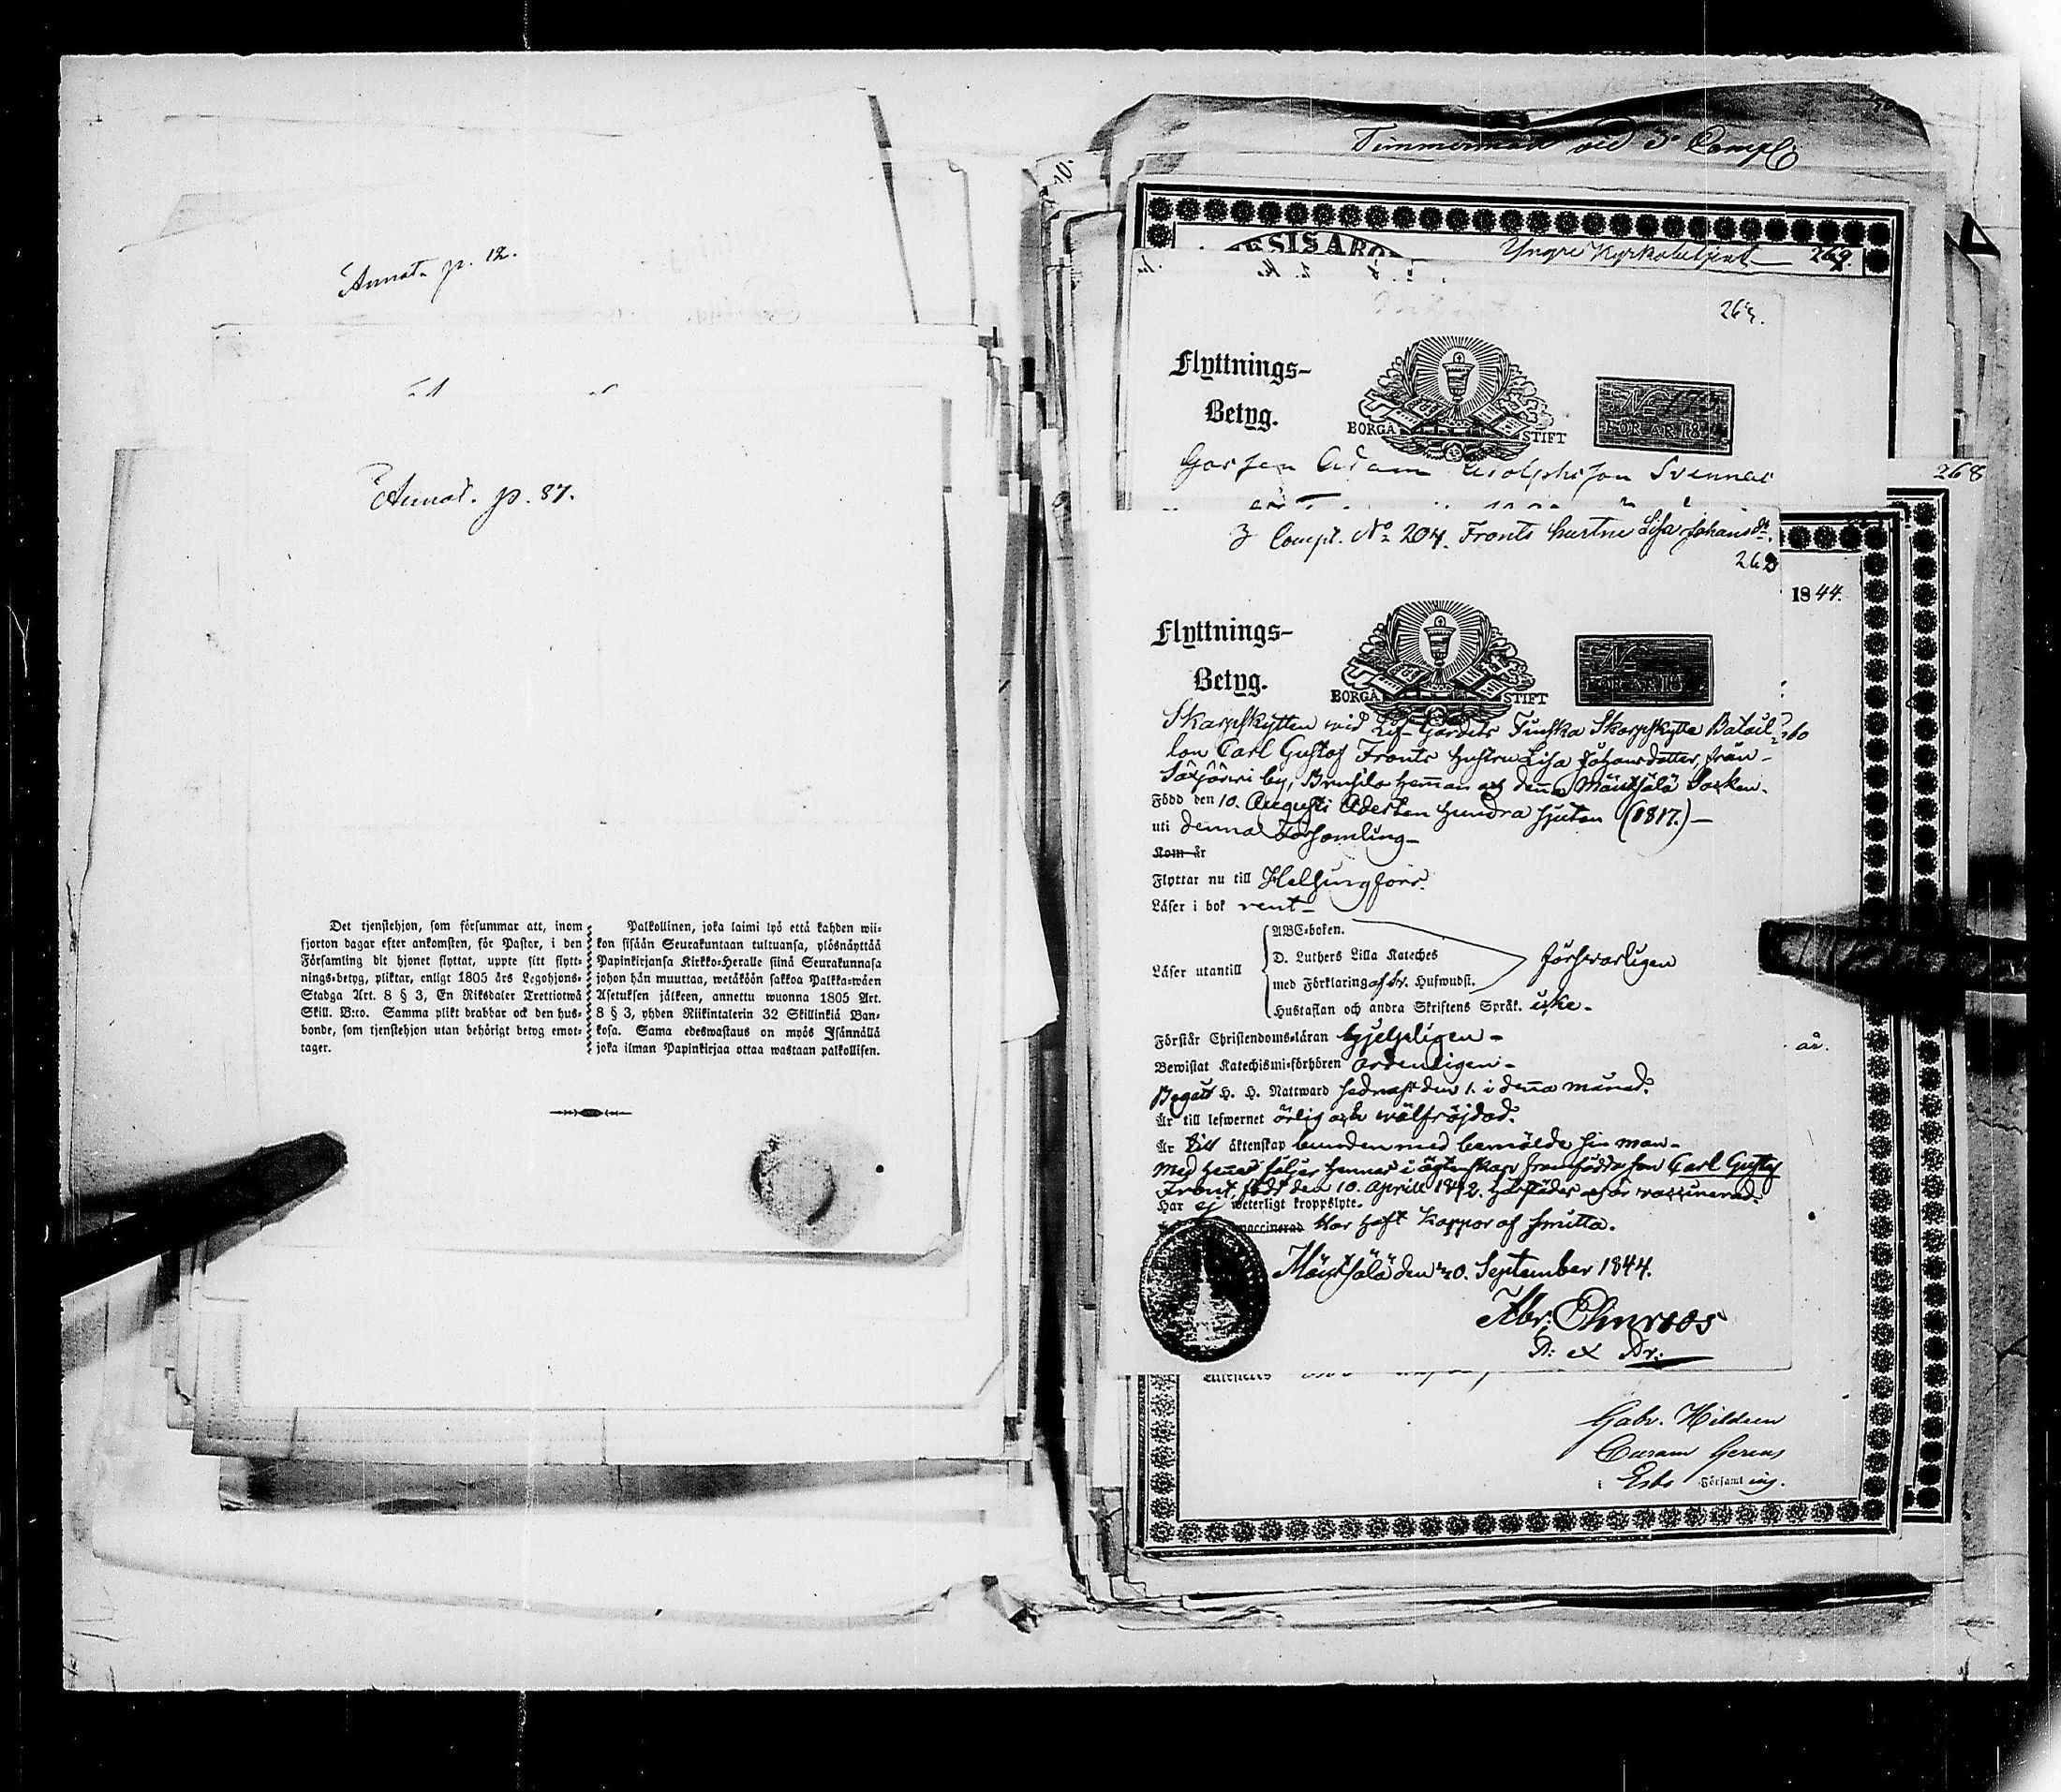 Annot. p. 12.
Annot. p. 87.
Det tjenstehjon, som försummar att, inom
fjorton dagar efter ankomsten, för Pastor, i den
Församling dit hjonet flyttat, uppte sitt flytt-
nings-betyg, pliktar, enligt 1805 års Legohjons-
Stadga Art. 8 § 3, En Riksdaler Trettiotwå
Skill. B:co. Samma plikt drabbar ock den hus-
bonde, som tjenstehjon utan behörigt betyg emot-
tager.
Palkollinen, joka laimi lyö että kahden wii-
kon sisään Seurakuntaan tultuansa, ylösnäyttää
Papinkirjansa Kirkko-Heralle siinä Seurakunnasa
johon hän muuttaa, wetäköön sakkoa Palkka-wäen
Asetuksen jälkeen, annettu wuonna 1805 Art.
8 § 3, yhden Riikintalerin 32 Skillinkiä Ban-
kosa. Sama edeswastaus on myös Isännällä
joka ilman Papinkirjaa ottaa wastaan palkollisen.
Timmerman vid 3 Comp
Yngre Kyrkobetjent 269.
Flyttnings-
Betyg.
BORGÅ STIFT
FÖR ÅR 18
Adam Adolphsson Svennas
268
3 Compt. No 204. Fronts hustru Lisa Johansdr.
1844.
Flyttnings-
Betyg.
BORGÅ STIFT
FÖR ÅR 18
Skarpskytten wid Lif-Gardets Finska Skarpskytte Batail-
lon Carl Gustaf Fronts hustru Lisa Johansdotter, från
Säxjärwi by, hemman af denna Mäntsälä Socken.
Född den 10. Augusti Aderton hundra sjuton (1817.)
uti denna Församling
Kom år
Flyttar nu till Helsingfors.
Läser i bok rent
Läser utantill
ABC-boken.
D. Luthers Lilla Kateches
med Förklaring af Dr. Hufwudst.
Hustaflan och andra Skriftens Språk. icke.
förswarligen
Förstår Christendoms-läran hjelpeligen
Bewistat Katechismi-förhören ordentligen
Begått H. H. Nattward sednast den 1. i denna månad.
Är till lefwernet ärlig och wälfräjdad.
Är till äktenskap bunden med bemälde sin man
Med henne följer hennes i ägtenskap framfödda son Carl Gustaf
Front, född den 10. Aprill 1842. härstädes och är vaccinerad.
Har ej weterligt kroppslyte.
vaccinerad Har haft koppor af smitta.
Mäntsälä den 20. September 1844.
år.
Gabr. Hildeen
Curam Gerens
i Esbo Församling.